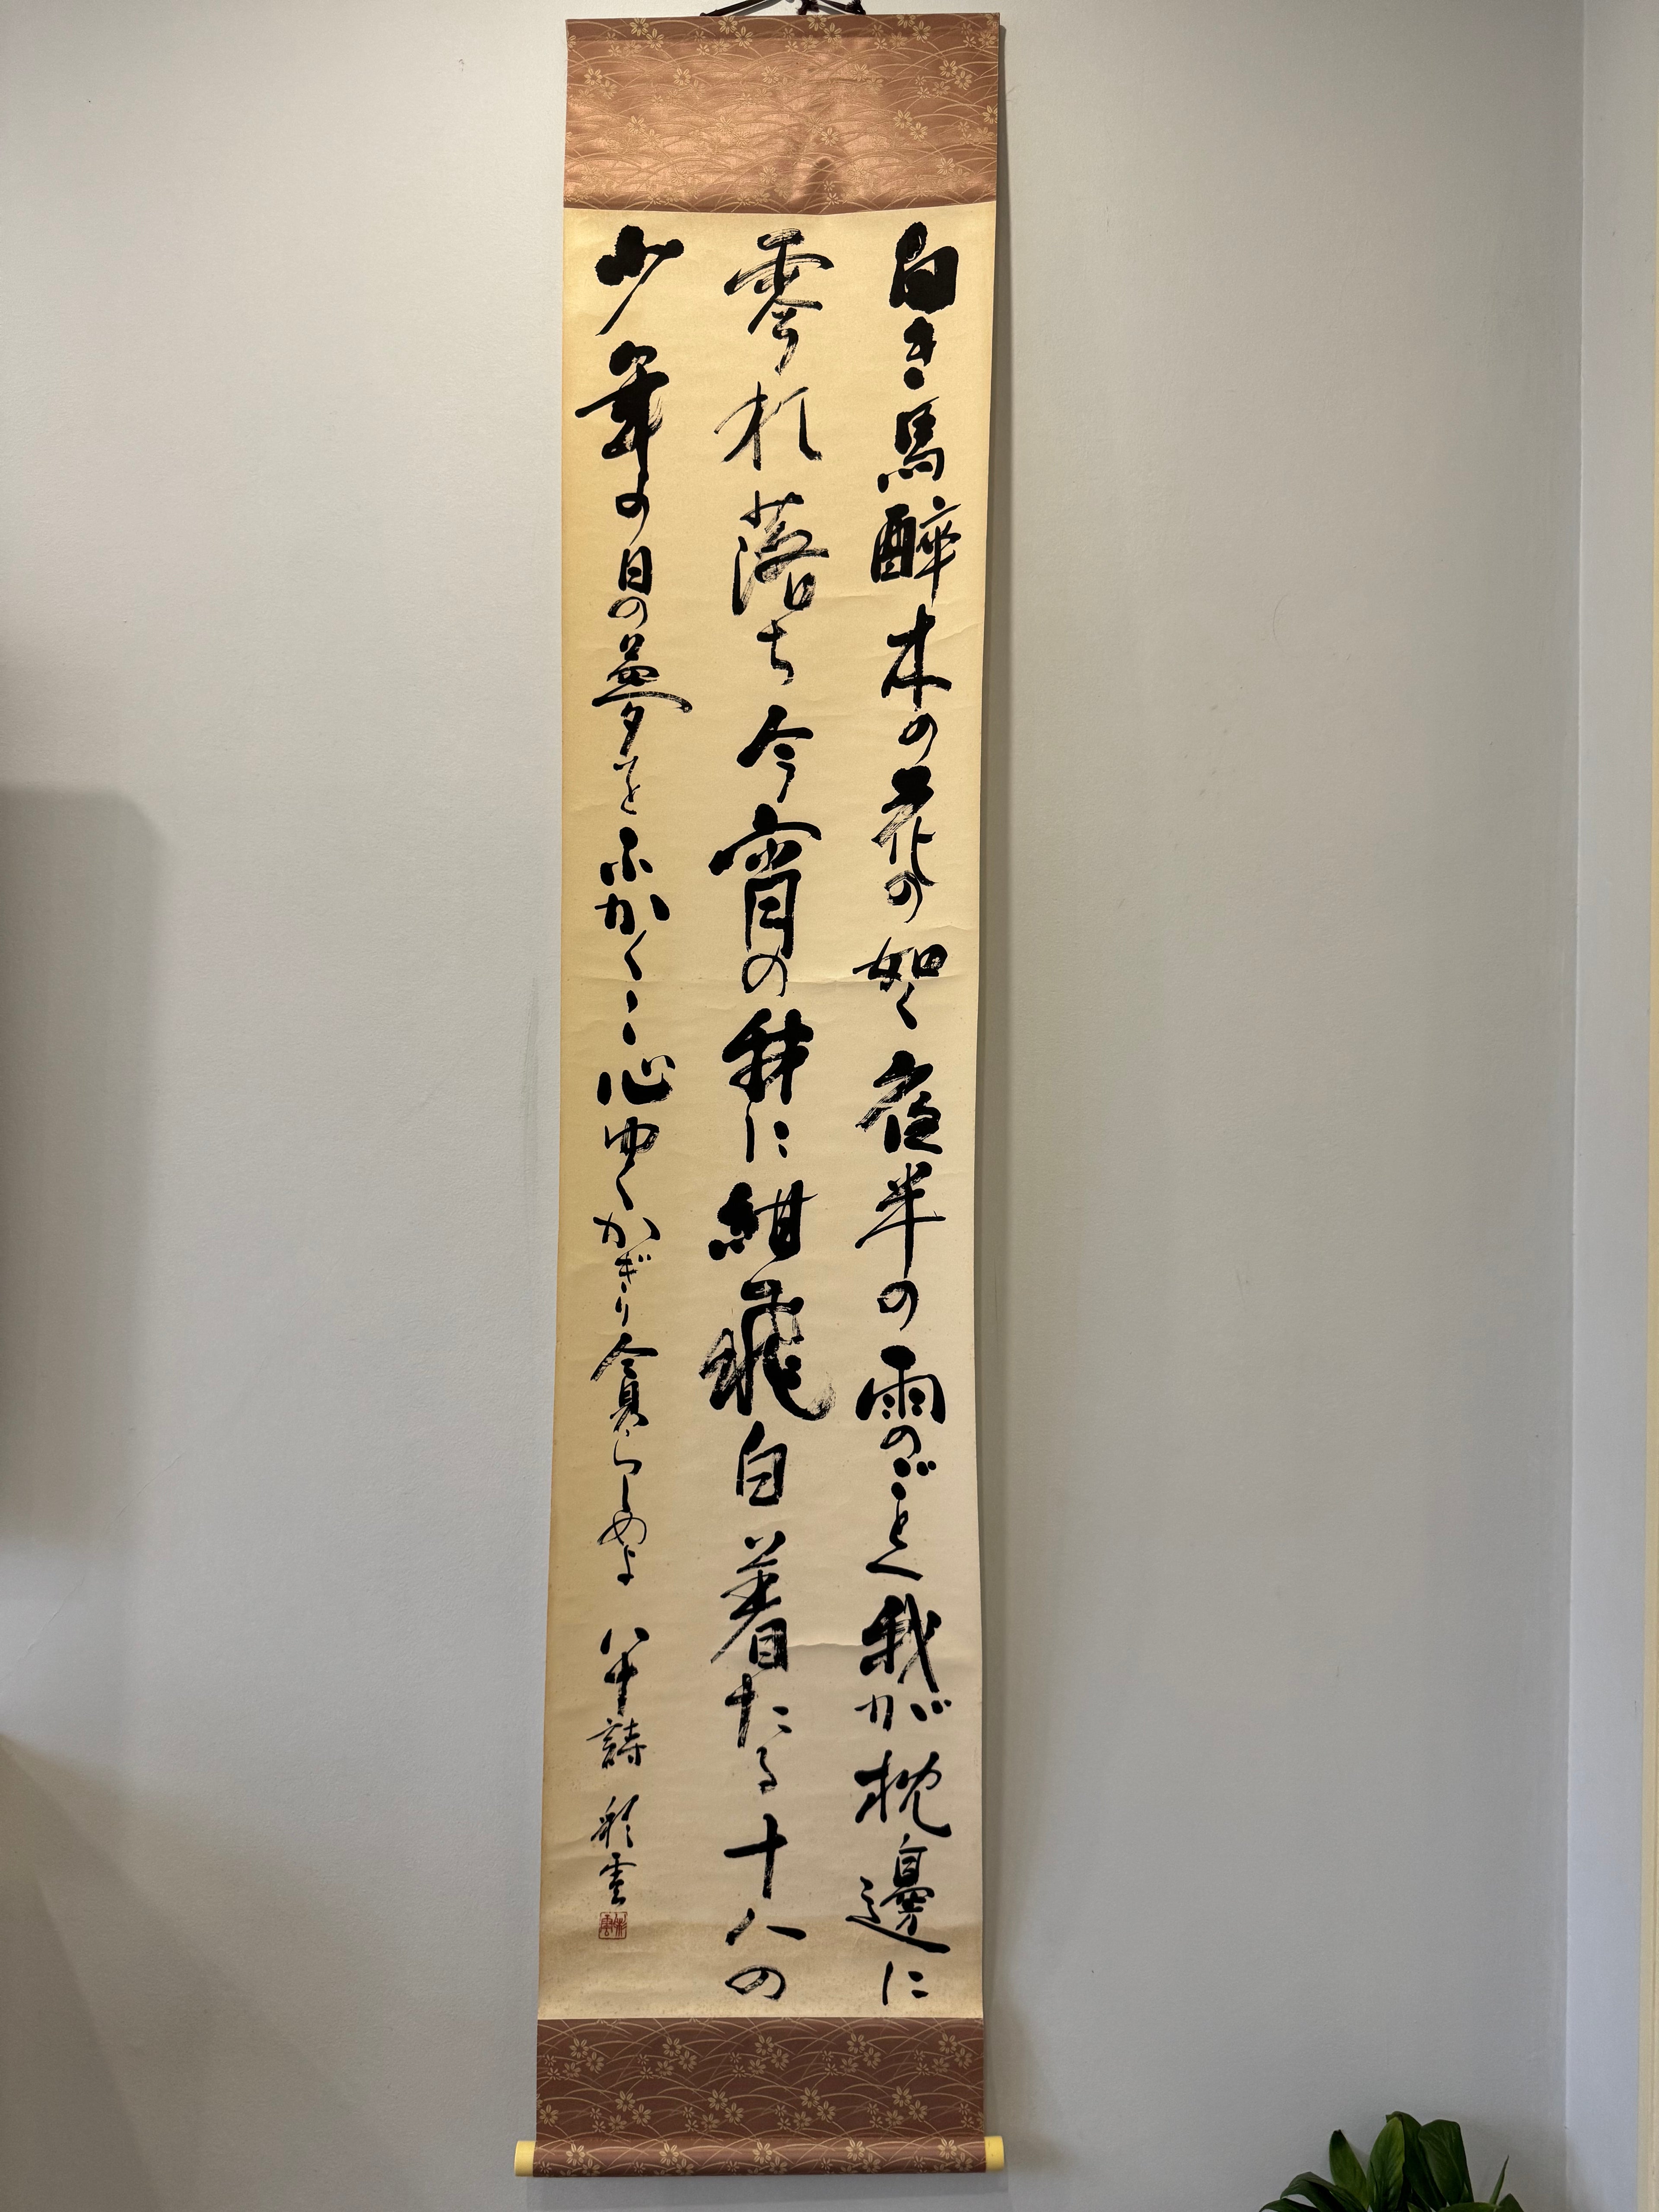 白き馬醉木の花の如く夜半の雨のごとく我が枕邊に
零れ落ち今宵の我に紺飛白着たる十八の
少年の日の夢をふかく〻心ゆくかぎり貪らしめよ 八十詩 彩雲
彩雲